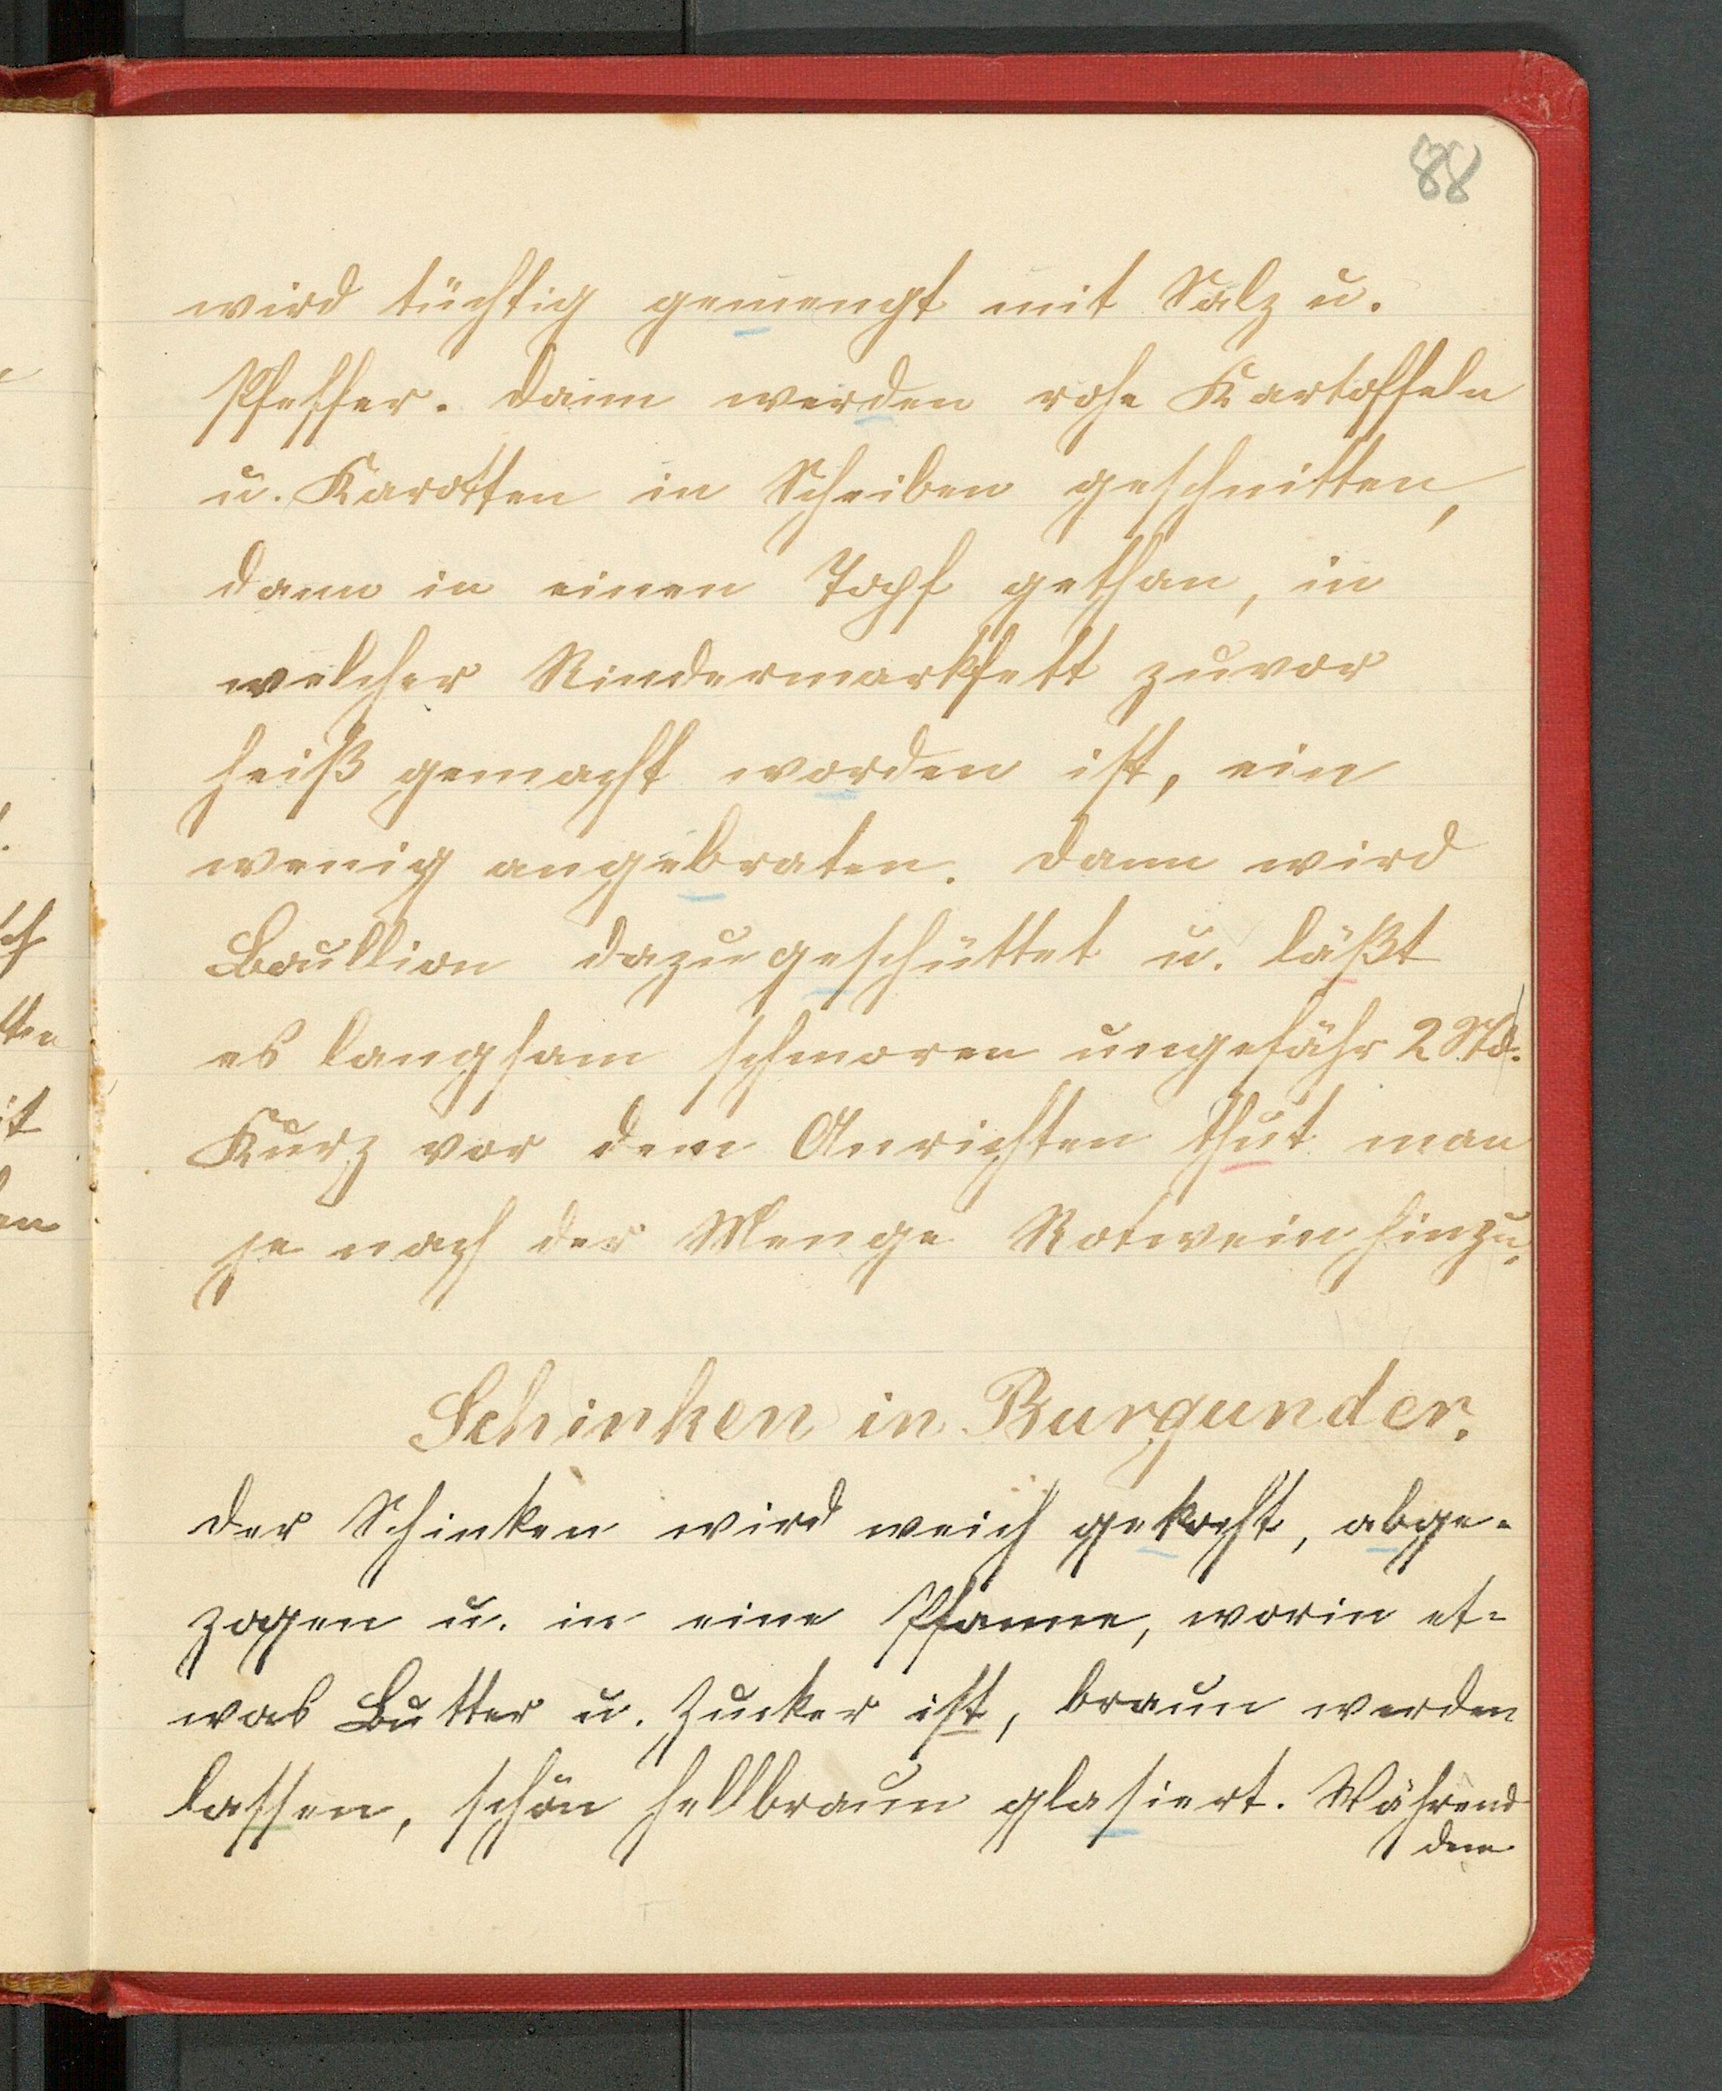 88
wird tüchtig gemengt mit Salz u.
Pfeffer. Dann werden rohe Kartoffeln
u. Karotten in Scheiben geschnitten,
dann in einen Topf gethan, in
welcher Rindermarkfett zuvor
heiß gemacht worden ist, ein
wenig angebraten. Dann wird
Boullion dazugeschüttet u. läßt
es langsam schmoren ungefähr 2 Std.
Kurz vor dem Anrichten thut man
je nach der Menge Rotwein hinzu.
Schinken in Burgunder.
Der Schinken wird weich gekocht, abge-
zogen u. in eine Pfanne, worin et-
was Butter u. Zucker ist, braun werden
lassen, schön hellbraun glasiert. Während
dem